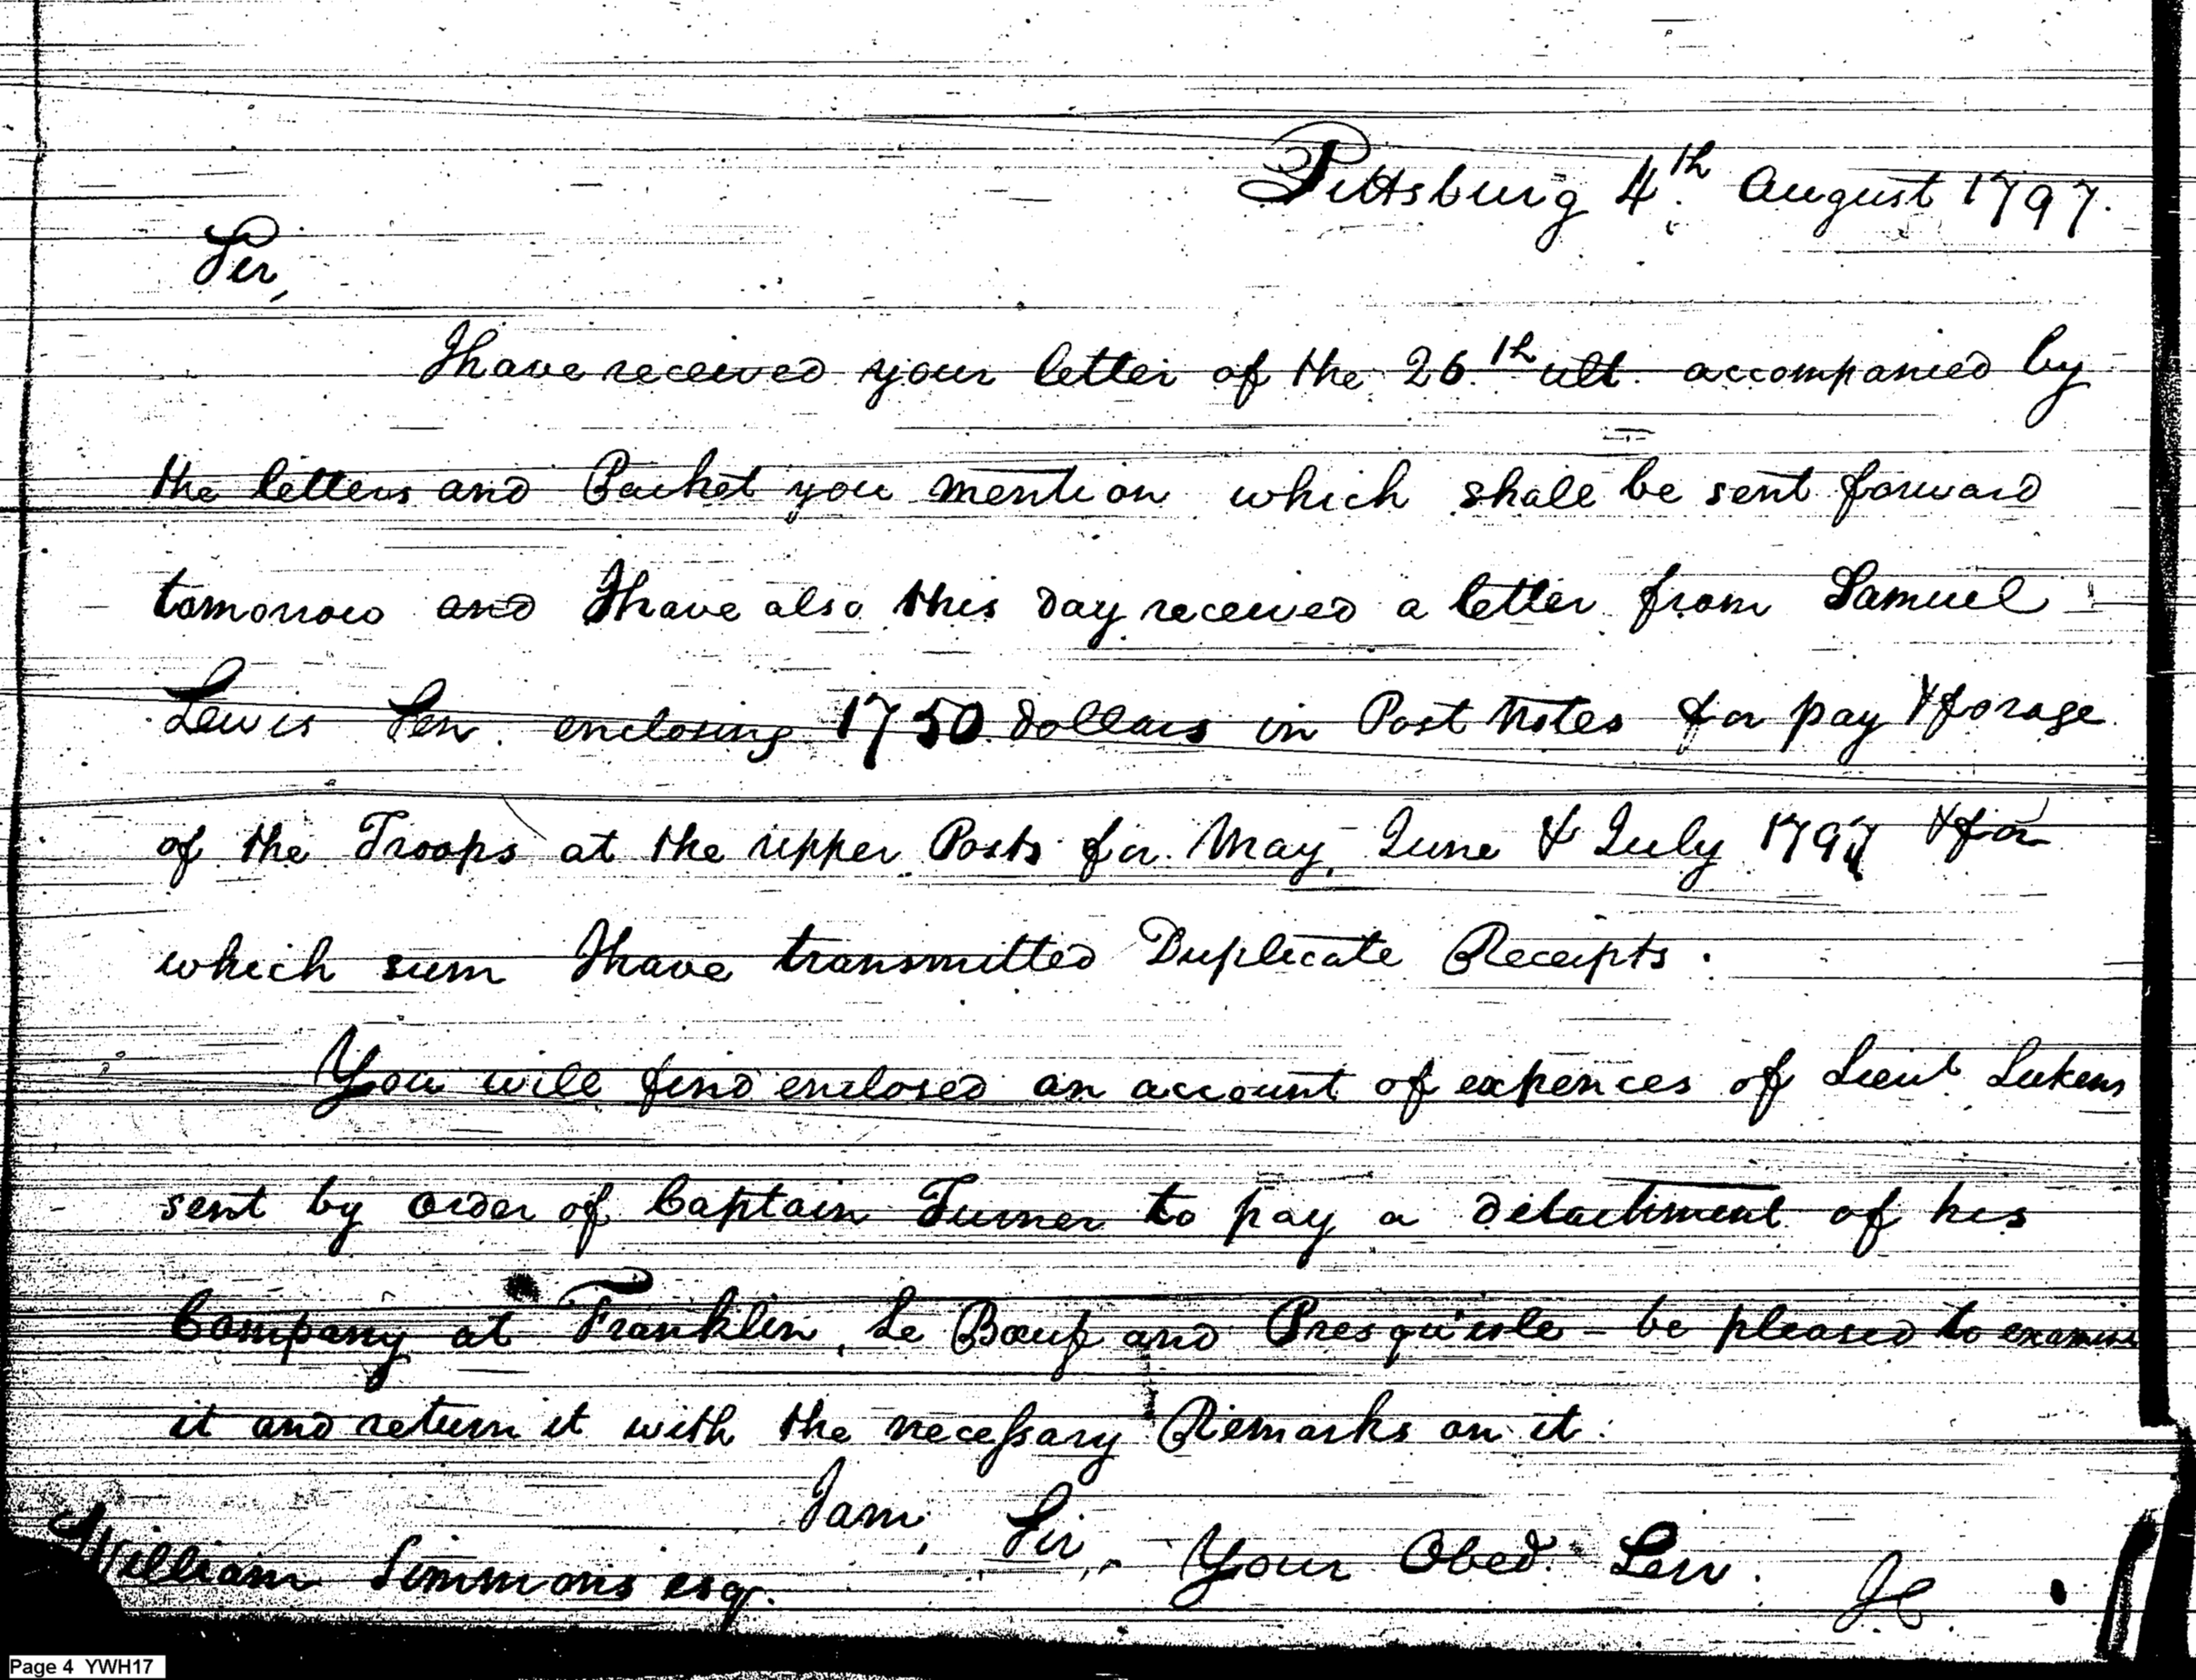 Pittsburg 4th. August 1797.
Sir,
I have received your letter of the 26.th ult. accompanied by
the letters and Packet you mention which shall be sent forward
tomorrow and I have also this day received a letter from Samuel
Lewis Sen. enclosing 1750 dollars in Post Notes for pay & forage
of the Troops at the upper Posts for May, June & July 1797 & for
which sum I have transmitted Duplicate Receipts.
You will find enclosed an account of expences of Lieut Lukens
sent by order of Captain Turner to pay a detachment of his
Company at Franklin, Le Bœuf and Presqu'isle - be pleased to examine
it and return it with the necessary Remarks on it.
I am, Sir, Your Obed. Serv.
William Simmons esqr.
Page 4 YWH17